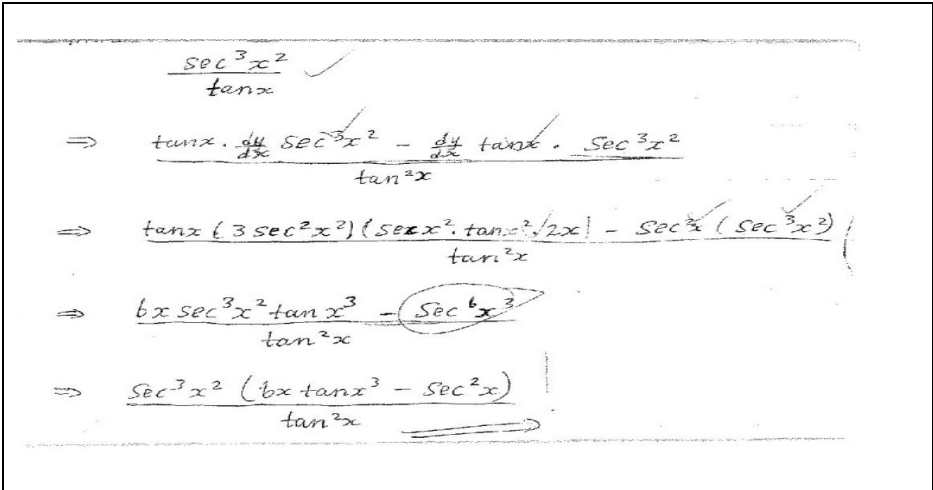 sec³x² / tanx ✓
⇒ tanx · dy/dx sec³x² − dy/dx tanx · sec³x² / tan²x
⇒ tanx (3 sec²x²)(secx² · tanx² · 2x) − sec²x (sec³x²) / tan²x
⇒ 6x sec³x² tanx³ − sec⁶x³ / tan²x
⇒ sec³x² (6x tanx³ − sec²x) / tan²x